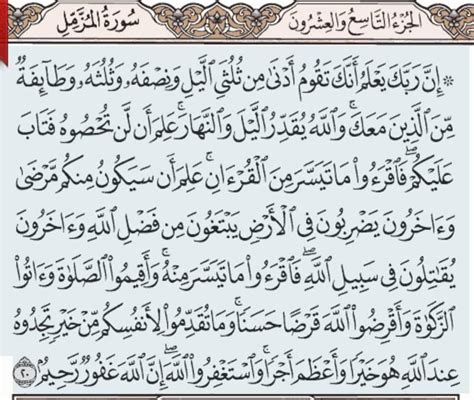 الجزء التاسع والعشرون
سورة المزمل
۞ إِنَّ رَبَّكَ يَعْلَمُ أَنَّكَ تَقُومُ أَدْنَىٰ مِن ثُلُثَيِ ٱلَّيْلِ وَنِصْفَهُۥ وَثُلُثَهُۥ وَطَآئِفَةٌ
مِّنَ ٱلَّذِينَ مَعَكَ ۚ وَٱللَّهُ يُقَدِّرُ ٱلَّيْلَ وَٱلنَّهَارَ ۚ عَلِمَ أَن لَّن تُحْصُوهُ فَتَابَ
عَلَيْكُمْ ۖ فَٱقْرَءُوا۟ مَا تَيَسَّرَ مِنَ ٱلْقُرْءَانِ ۚ عَلِمَ أَن سَيَكُونُ مِنكُم مَّرْضَىٰ
وَءَاخَرُونَ يَضْرِبُونَ فِى ٱلْأَرْضِ يَبْتَغُونَ مِن فَضْلِ ٱللَّهِ وَءَاخَرُونَ
يُقَٰتِلُونَ فِى سَبِيلِ ٱللَّهِ ۖ فَٱقْرَءُوا۟ مَا تَيَسَّرَ مِنْهُ ۚ وَأَقِيمُوا۟ ٱلصَّلَوٰةَ وَءَاتُوا۟
ٱلزَّكَوٰةَ وَأَقْرِضُوا۟ ٱللَّهَ قَرْضًا حَسَنًا ۚ وَمَا تُقَدِّمُوا۟ لِأَنفُسِكُم مِّنْ خَيْرٍ تَجِدُوهُ
عِندَ ٱللَّهِ هُوَ خَيْرًا وَأَعْظَمَ أَجْرًا ۚ وَٱسْتَغْفِرُوا۟ ٱللَّهَ ۖ إِنَّ ٱللَّهَ غَفُورٌ رَّحِيمٌۢ ٢٠